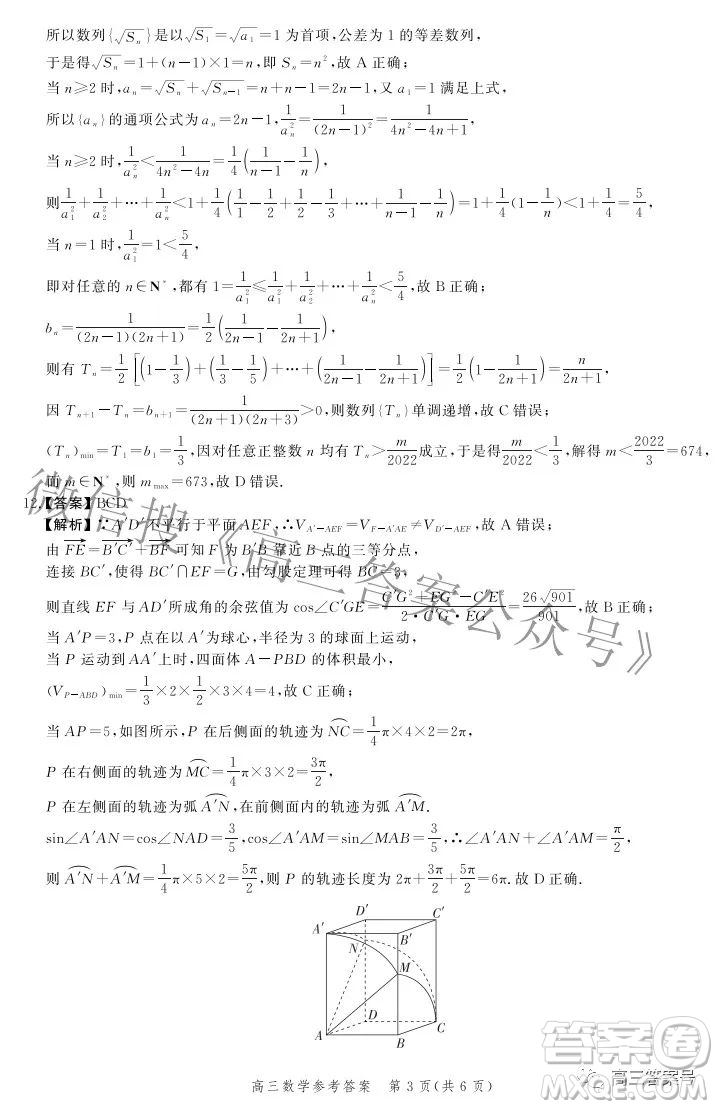 所以数列{√Sₙ}是以√S₁=√a₁=1为首项,公差为1的等差数列,
于是得√Sₙ=1+(n-1)×1=n,即Sₙ=n²,故A正确;
当n≥2时,aₙ=√Sₙ+√Sₙ₋₁=n+n-1=2n-1,又a₁=1满足上式,
所以{aₙ}的通项公式为aₙ=2n-1,1/aₙ²=1/(2n-1)²=1/(4n²-4n+1),
当n≥2时,1/aₙ²<1/(4n²-4n)=1/4(1/(n-1)-1/n),
则1/a₁²+1/a₂²+…+1/aₙ²<1+1/4(1/1-1/2+1/2-1/3+…+1/(n-1)-1/n)=1+1/4(1-1/n)<1+1/4=5/4,
当n=1时,1/a₁²=1<5/4,
即对任意的n∈N*,都有1=1/a₁²≤1/a₁²+1/a₂²+…+1/aₙ²<5/4,故B正确;
bₙ=1/((2n-1)(2n+1))=1/2(1/(2n-1)-1/(2n+1)),
则有Tₙ=1/2[(1-1/3)+(1/3-1/5)+…+(1/(2n-1)-1/(2n+1))]=1/2(1-1/(2n+1))=n/(2n+1),
因Tₙ₊₁-Tₙ=bₙ₊₁=1/((2n+1)(2n+3))>0,则数列{Tₙ}单调递增,故C错误;
(Tₙ)min=T₁=b₁=1/3,因对任意正整数n均有Tₙ>m/2022成立,于是得m/2022<1/3,解得m<2022/3=674,
而m∈N*,则mmax=673,故D错误.
12.【答案】BCD
【解析】∵A′D′不平行于平面AEF,∴V_{A′-AEF}=V_{F-A′AE}≠V_{D′-AEF},故A错误;
由FE=B′C′+BF可知F为B′B靠近B点的三等分点,
连接BC′,使得BC′∩EF=G,由勾股定理可得BC′=
则直线EF与AD′所成角的余弦值为cos∠C′GE=(C′G²+EG²-C′E²)/(2·C′G·EG)=26√901/901,故B正确;
当A′P=3,P点在以A′为球心,半径为3的球面上运动,
当P运动到AA′上时,四面体A-PBD的体积最小,
(V_{P-ABD})min=1/3×2×1/2×3×4=4,故C正确;
当AP=5,如图所示,P在后侧面的轨迹为NC=1/4π×4×2=2π,
P在右侧面的轨迹为MC=1/4π×3×2=3π/2,
P在左侧面的轨迹为弧A′N,在前侧面内的轨迹为弧A′M.
sin∠A′AN=cos∠NAD=3/5,cos∠A′AM=sin∠MAB=3/5,∴∠A′AN+∠A′AM=π/2,
则A′N+A′M=1/4π×5×2=5π/2,则P的轨迹长度为2π+3π/2+5π/2=6π.故D正确.
D′
C′
A′
B′
N
M
D
C
A
B
微信搜《高三答案公众号》
答案圈
MXQE.COM
高三答案号
高三数学参考答案 第3页(共6页)